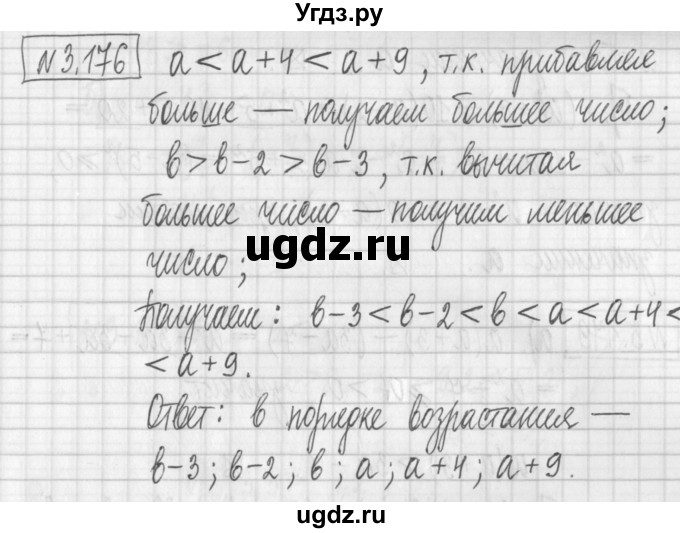 Угдз.ру
№3.176 a < a+4 < a+9, т.к. прибавляя
больше — получаем большее число;
в > в-2 > в-3, т.к. вычитая
большее число — получим меньшее
число;
ugdz.ru
Получаем: в-3 < в-2 < в < a < a+4 <
< a+9.
Ответ: в порядке возрастания —
в-3; в-2; в; a; a+4; a+9.
ugdz.ru